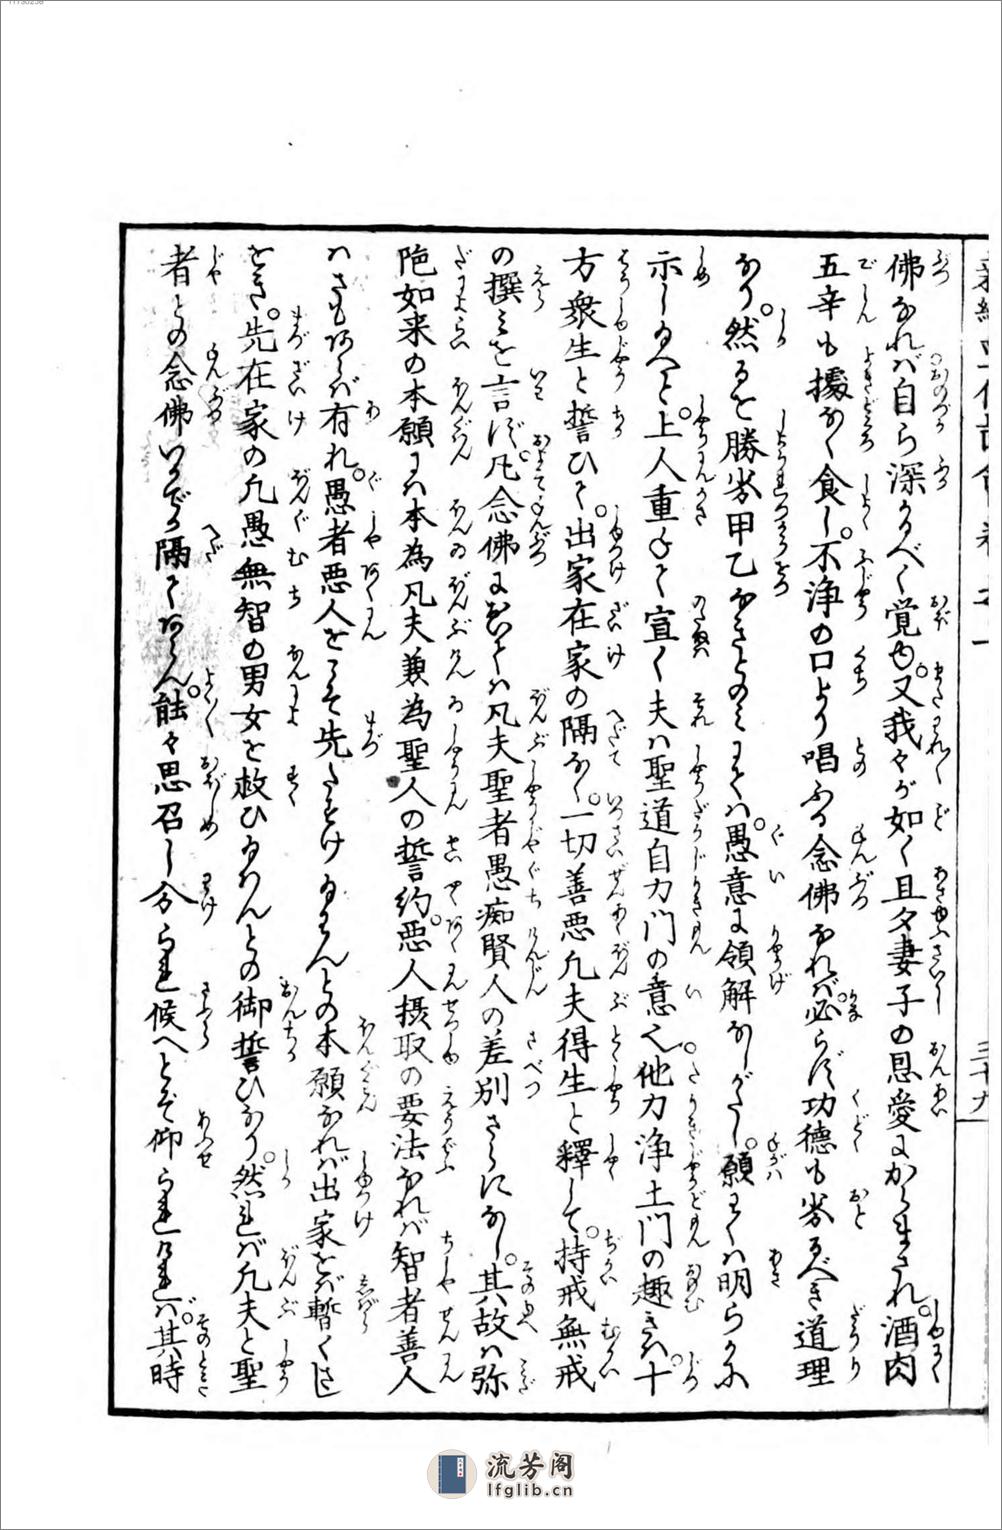 佛なれバ自ら深かるべく覚ゆ。又我々が如く且夕妻子の恩愛にからまされ。酒肉
五辛も擾なく食し。不浄の口より唱ふる念佛なれバ。必らず功徳も劣るべき道理
なり。然るを勝劣甲乙なきとのミにてハ。愚意に領解なしがたし。願くハ明らかに
示し玉へと。上人重ねて宣く夫ハ聖道自力門の意也。他力浄土門の趣きハ。十
方衆生と誓ひて。出家在家の隔なく。一切善悪凡夫得生と釋して。持戒無戒
の撰ミを言ず。凡念佛に於てハ凡夫聖者愚痴賢人の差別さらになし。其故ハ弥
陀如来の本願にハ本為凡夫兼為聖人の誓約。悪人摂取の要法なれバ智者善人
ハさもあらバ有れ。愚者悪人をこそ先たすけ玉わんとの本願なれバ出家をバ暫くさし
をき。先在家の凡愚無智の男女を救ひ玉ハんとの御誓ひなり。然れバ凡夫と聖
者との念佛いかでか隔てあらん。能々思召し分られ候へとぞ仰られけれバ。其時
三十九
流芳阁
lfglib.cn